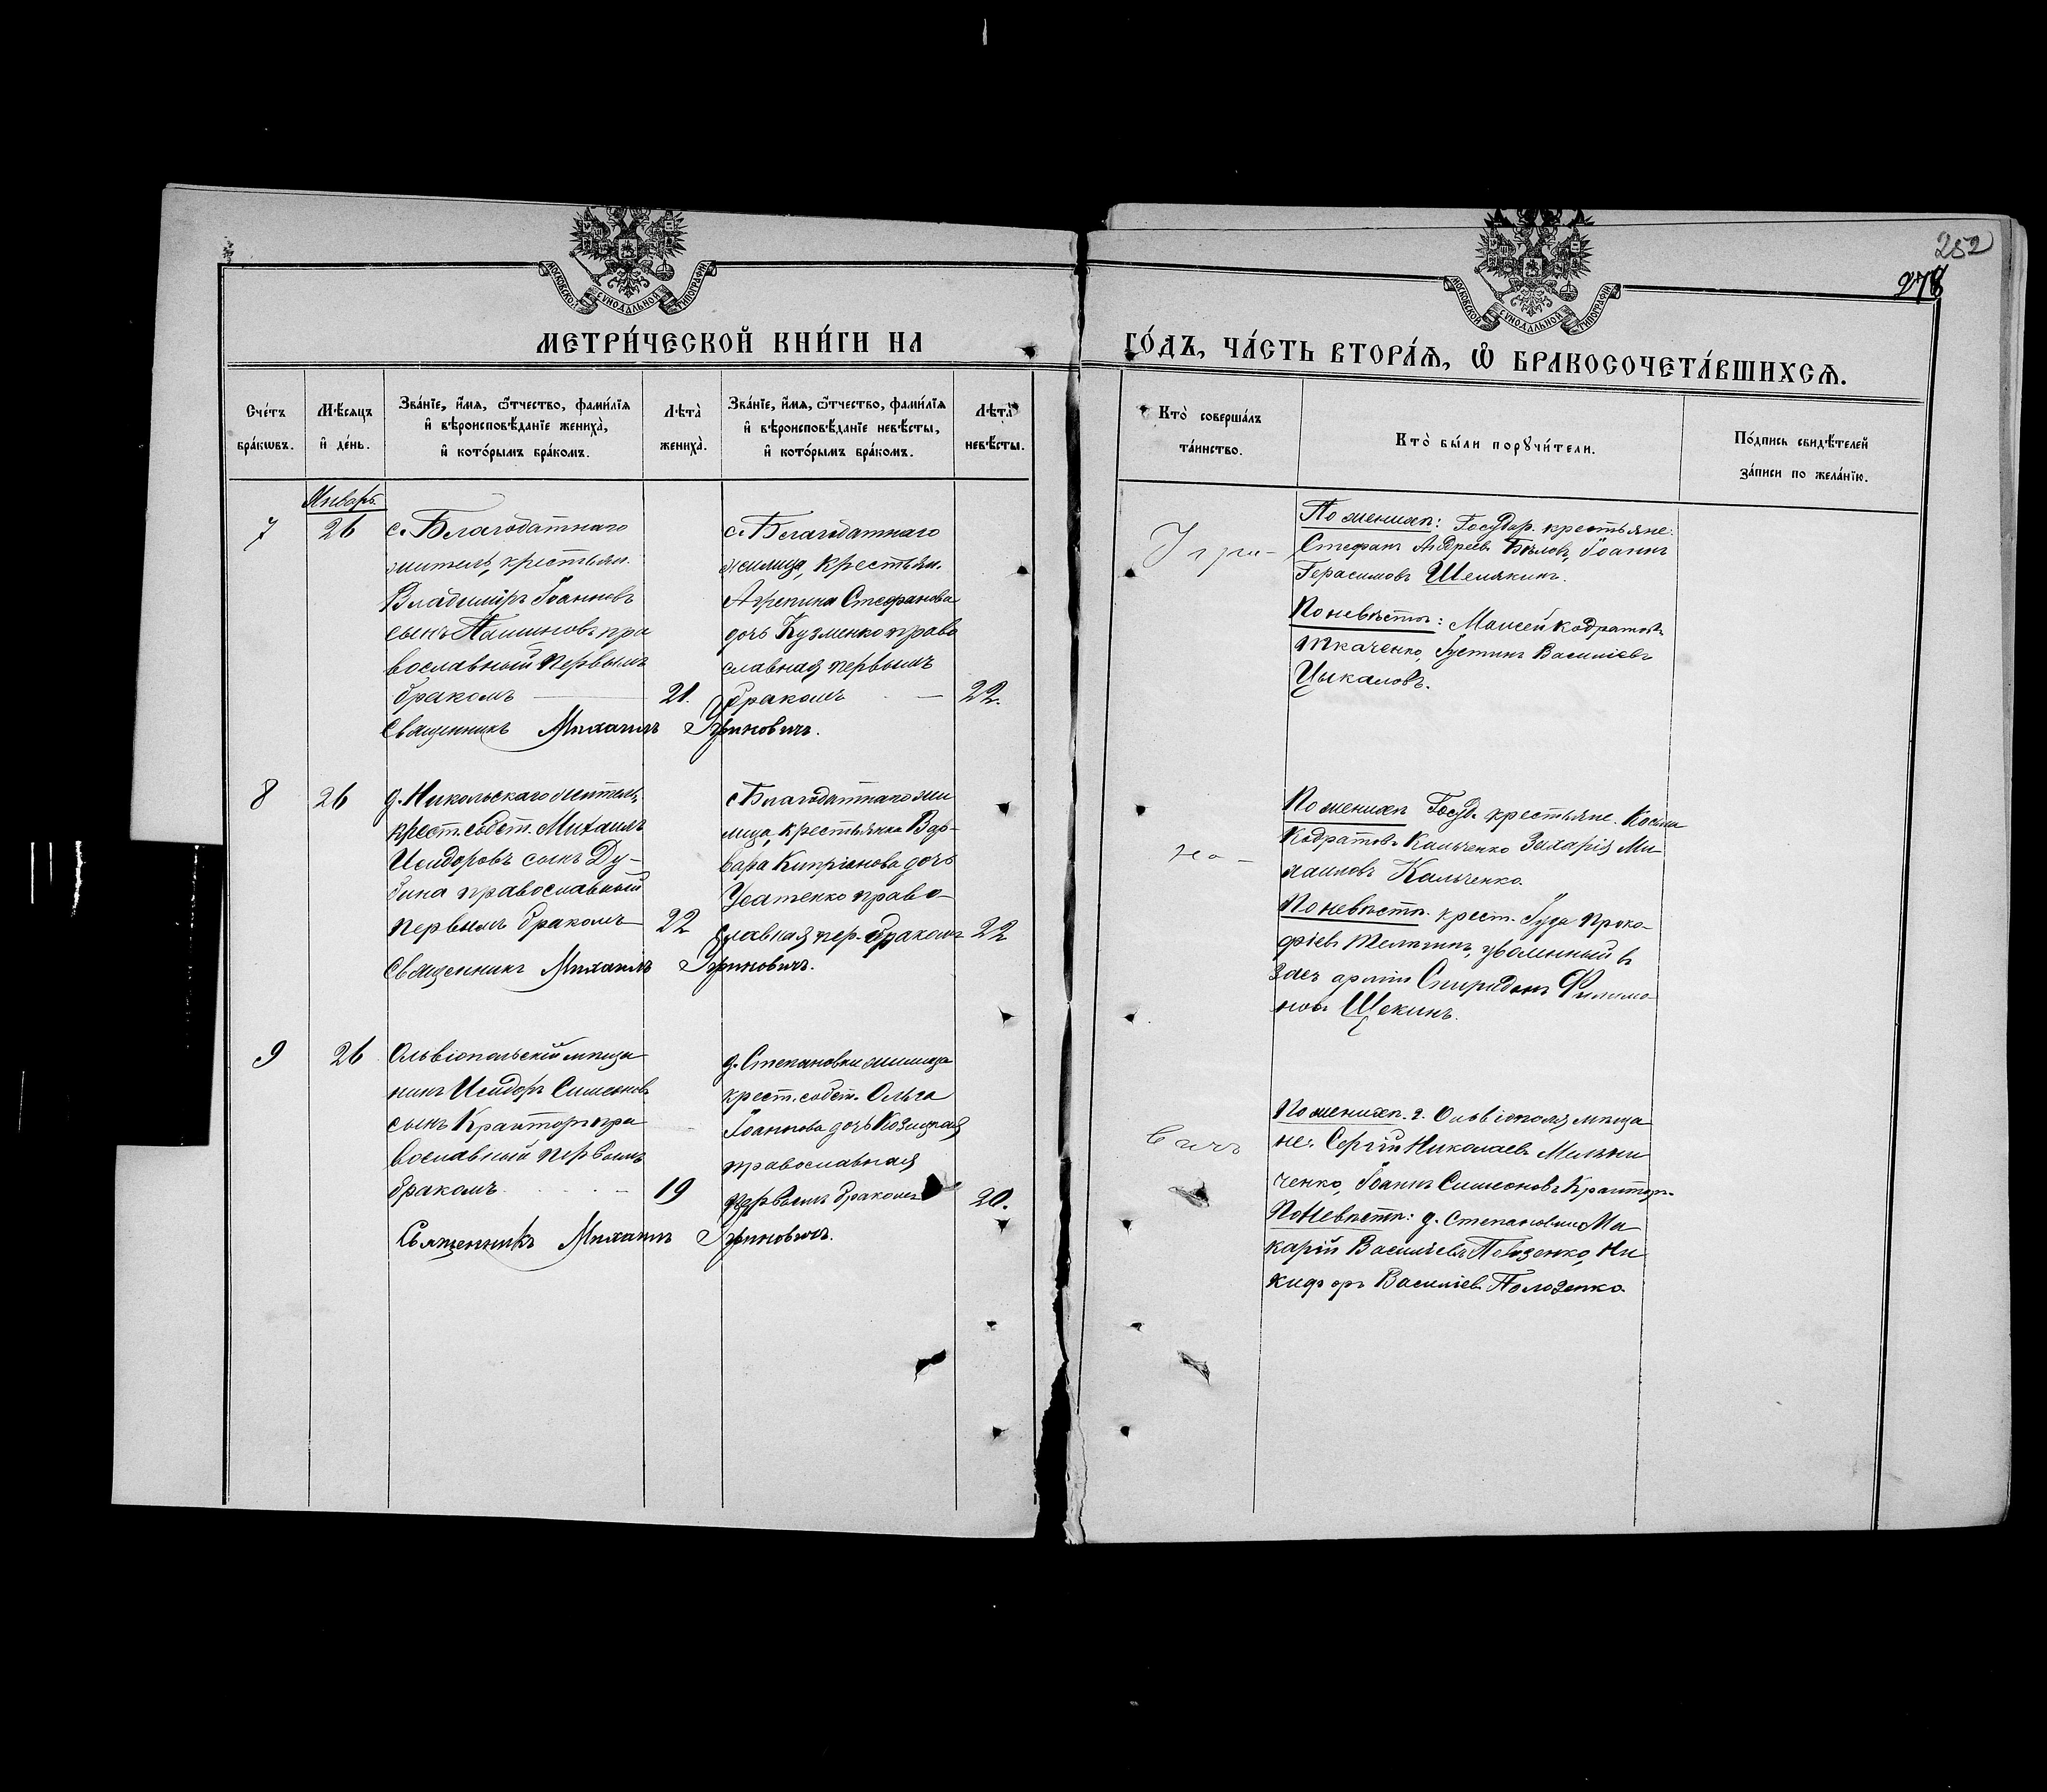 252
278
МОСКОВСКОЙ СУНОДАЛЬНОЙ ТИПОГРАФІИ
МОСКОВСКОЙ СУНОДАЛЬНОЙ ТИПОГРАФІИ
МЕТРИ́ЧЕСКОЙ КНИ́ГИ НА
ГО́ДЪ, ЧА́СТЬ ВТОРА́Ѧ, Ѡ҆ БРАКОСОЧЕТА́ВШИХСѦ.
Сче́тъ бра́кѡвъ.
Мѣ́сяцъ и҆ де́нь.
Зва́нїе, и҆́мя, ѻ҆́тчество, фами́лїя и҆ вѣроисповѣ́данїе жениха̀, и҆ кото́рымъ бра́комъ.
Лѣта̀ жениха̀.
Зва́нїе, и҆́мя, ѻ҆́тчество, фами́лїя и҆ вѣроисповѣ́данїе невѣ́сты, и҆ кото́рымъ бра́комъ.
Лѣта̀ невѣ́сты.
Кто̀ соверша́лъ та́инство.
Кто̀ бы́ли порꙋчи́тели.
По́дпись свидѣ́телей за́писи по жела́нїю.
Январь
7
26
с. Благодатнаго
житель, крестьян.
Владимiръ Iоанновъ
сынъ Пашиновъ пра
вославный первымъ
бракомъ
21.
с. Благодатнаго
жилица, крестьян.
Агрепина Стефанова
дочь Кузменко право
славная первымъ
бракомъ
22.
Священникъ Михаилъ Гриновичъ.
Гри-
По женихѣ: Государ. крестьяне:
Стефанъ Андреевъ Бѣловъ, Iоаннъ
Герасимовъ Шелякинъ.
По невѣстѣ: Моисей Кодратовъ
Ткаченко, Iустинъ Василiевъ
Цыкаловъ.
8
26
д. Никольскаго житель,
крест. собст. Михаилъ
Исидоровъ сынъ Ду-
бина православный
первымъ бракомъ
22
с Благодатнаго жи
лица, крестьянка Вар-
вара Кипрiанова дочь
Усатенко право-
славная пер. бракомъ
22
Священникъ Михаилъ Гриновичъ.
но-
По женихѣ Госуд. крестьяне. Косма
Кодратовъ Кальченко Захарiя Ми-
хаиловъ Кальченко.
По невѣстѣ. крест. Iуда Проко-
фiевъ Телятинъ, уволенный в
запас армiи Спиридонъ Филимо-
новъ Щекинъ.
9
26
Ольвiопольскiй мѣща
нинъ Исидоръ Симеоновъ
сынъ Кранторъ пра
вославный первымъ
бракомъ
19
д. Степановки жилица
крест. собст. Ольга
Iоаннова дочь Козицкая
православная
первымъ бракомъ
20.
Священникъ Михаилъ Гриновичъ.
вичъ
По женихѣ. г. Ольвiополя мѣща
не. Сергiй Николаевъ Мельни
ченко, Iоаннъ Симеоновъ Кранторъ.
По Невѣстѣ: д. Степановки Ма
карiй Василiевъ Полозенко, Ни
кифоръ Василiевъ Полозенко.